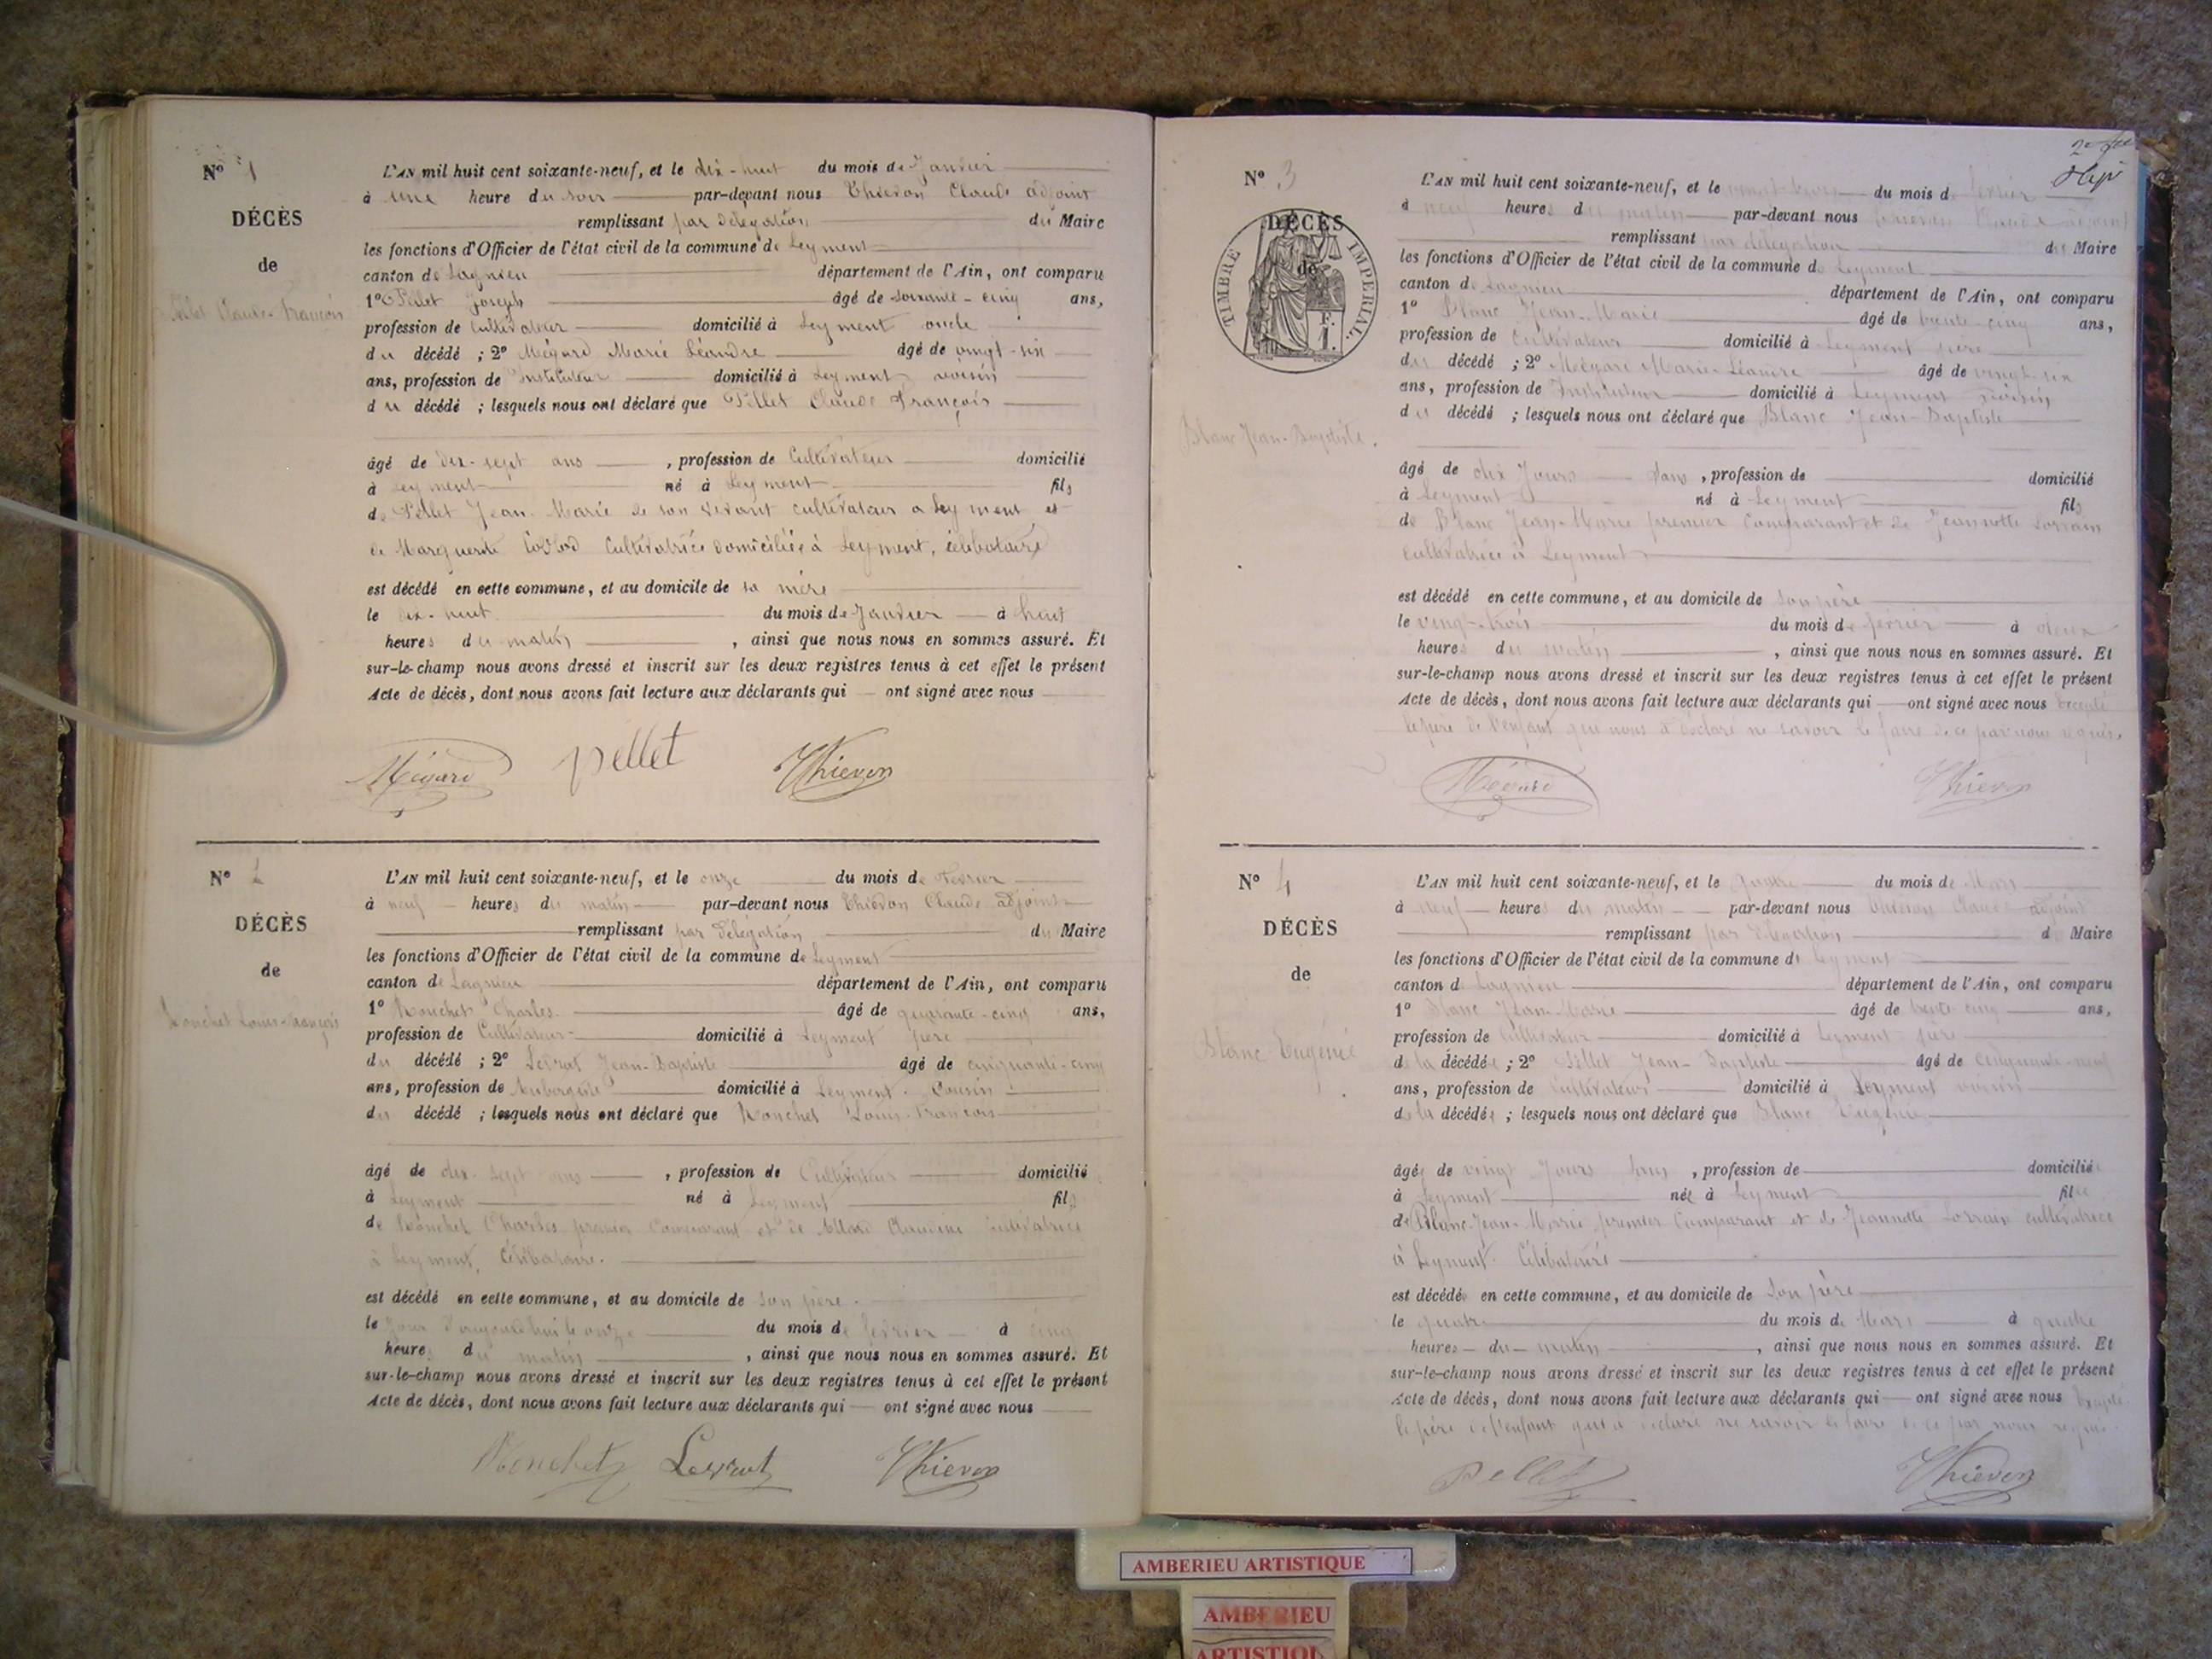 N° 1
DÉCÈS
de
Pellet Claude-François
L'AN mil huit cent soixante-neuf, et le dix-huit du mois de Janvier
à une heure du soir par-devant nous Thiévon Claude adjoint
remplissant par délégation du Maire
les fonctions d'Officier de l'état civil de la commune de Leyment
canton de Lagnieu département de l'Ain, ont comparu
1° Pellet Joseph âgé de soixante-cinq ans,
profession de Cultivateur domicilié à Leyment oncle
du décédé ; 2° Mégard Marie Léandre âgé de vingt-six
ans, profession de Instituteur domicilié à Leyment voisin
du décédé ; lesquels nous ont déclaré que Pellet Claude François
âgé de dix-sept ans , profession de Cultivateur domicilié
à Leyment né à Leyment fils
de Pellet Jean-Marie de son vivant cultivateur à Leyment et
de Marguerite cultivatrice domiciliée à Leyment, célibataire
est décédé en cette commune, et au domicile de sa mère
le dix-huit du mois de Janvier à huit
heures du matin , ainsi que nous nous en sommes assuré. Et
sur-le-champ nous avons dressé et inscrit sur les deux registres tenus à cet effet le présent
Acte de décès, dont nous avons fait lecture aux déclarants qui ont signé avec nous
Mégard pellet Thievon
N° 2
DÉCÈS
de
Louis-François
L'AN mil huit cent soixante-neuf, et le onze du mois de février
à neuf heures du matin par-devant nous Thiévon Claude adjoint
remplissant par délégation du Maire
les fonctions d'Officier de l'état civil de la commune de Leyment
canton de Lagnieu département de l'Ain, ont comparu
1° Charles âgé de quarante-cinq ans,
profession de Cultivateur domicilié à Leyment père
du décédé ; 2° Levrat Jean-Baptiste âgé de cinquante-cinq
ans, profession de Aubergiste domicilié à Leyment Cousin
du décédé ; lesquels nous ont déclaré que Louis-François
âgé de dix-sept ans , profession de Cultivateur domicilié
à Leyment né à Leyment fils
de Charles premier Comparant et de Claudine cultivatrice
à Leyment, Célibataire.
est décédé en cette commune, et au domicile de son père.
le jour d'aujourd'hui le onze du mois de février à cinq
heures du matin , ainsi que nous nous en sommes assuré. Et
sur-le-champ nous avons dressé et inscrit sur les deux registres tenus à cet effet le présent
Acte de décès, dont nous avons fait lecture aux déclarants qui ont signé avec nous
Levrat Thievon
N° 3
DÉCÈS
de
TIMBRE IMPERIAL.
F.
1.
Blanc Jean-Baptiste.
L'AN mil huit cent soixante-neuf, et le vingt-trois du mois de février
à neuf heures du matin par-devant nous Thiévon Claude adjoint
remplissant par délégation du Maire
les fonctions d'Officier de l'état civil de la commune de Leyment
canton de Lagnieu département de l'Ain, ont comparu
1° Blanc Jean-Marie âgé de trente-cinq ans,
profession de Cultivateur domicilié à Leyment père
du décédé ; 2° Mégard Marie-Léandre âgé de vingt-six
ans, profession de Instituteur domicilié à Leyment voisin
du décédé ; lesquels nous ont déclaré que Blanc Jean-Baptiste
âgé de dix Jours sans , profession de domicilié
à Leyment né à Leyment fils
de Blanc Jean-Marie premier Comparant et de Jeannette Lorrain
cultivatrice à Leyment
est décédé en cette commune, et au domicile de son père
le vingt-trois du mois de février à deux
heures du matin , ainsi que nous nous en sommes assuré. Et
sur-le-champ nous avons dressé et inscrit sur les deux registres tenus à cet effet le présent
Acte de décès, dont nous avons fait lecture aux déclarants qui ont signé avec nous excepté
le père de l'enfant qui nous a déclaré ne savoir le faire de ce par nous requis.
Mégard Thievon
N° 4
DÉCÈS
de
Blanc Eugénie
L'AN mil huit cent soixante-neuf, et le quatre du mois de Mars
à neuf heures du matin par-devant nous Thiévon Claude adjoint
remplissant par délégation d Maire
les fonctions d'Officier de l'état civil de la commune de Leyment
canton d Lagnieu département de l'Ain, ont comparu
1° Blanc Jean-Marie âgé de trente-cinq ans,
profession de Cultivateur domicilié à Leyment père
de la décédée ; 2° Pellet Jean-Baptiste âgé de cinquante-neuf
ans, profession de Cultivateur domicilié à Leyment voisin
de la décédée ; lesquels nous ont déclaré que Blanc Eugénie
âgée de vingt Jours sans , profession de domiciliée
à Leyment née à Leyment fille
de Blanc Jean-Marie premier Comparant et de Jeannette Lorrain cultivatrice
à Leyment. Célibataire
est décédée en cette commune, et au domicile de son père
le quatre du mois de Mars à quatre
heures du matin , ainsi que nous nous en sommes assuré. Et
sur-le-champ nous avons dressé et inscrit sur les deux registres tenus à cet effet le présent
Acte de décès, dont nous avons fait lecture aux déclarants qui ont signé avec nous excepté
le père de l'enfant qui a déclaré ne savoir le faire de ce par nous requis.
Pellet Thievon
AMBERIEU ARTISTIQUE
AMBERIEU
ARTISTIQUE